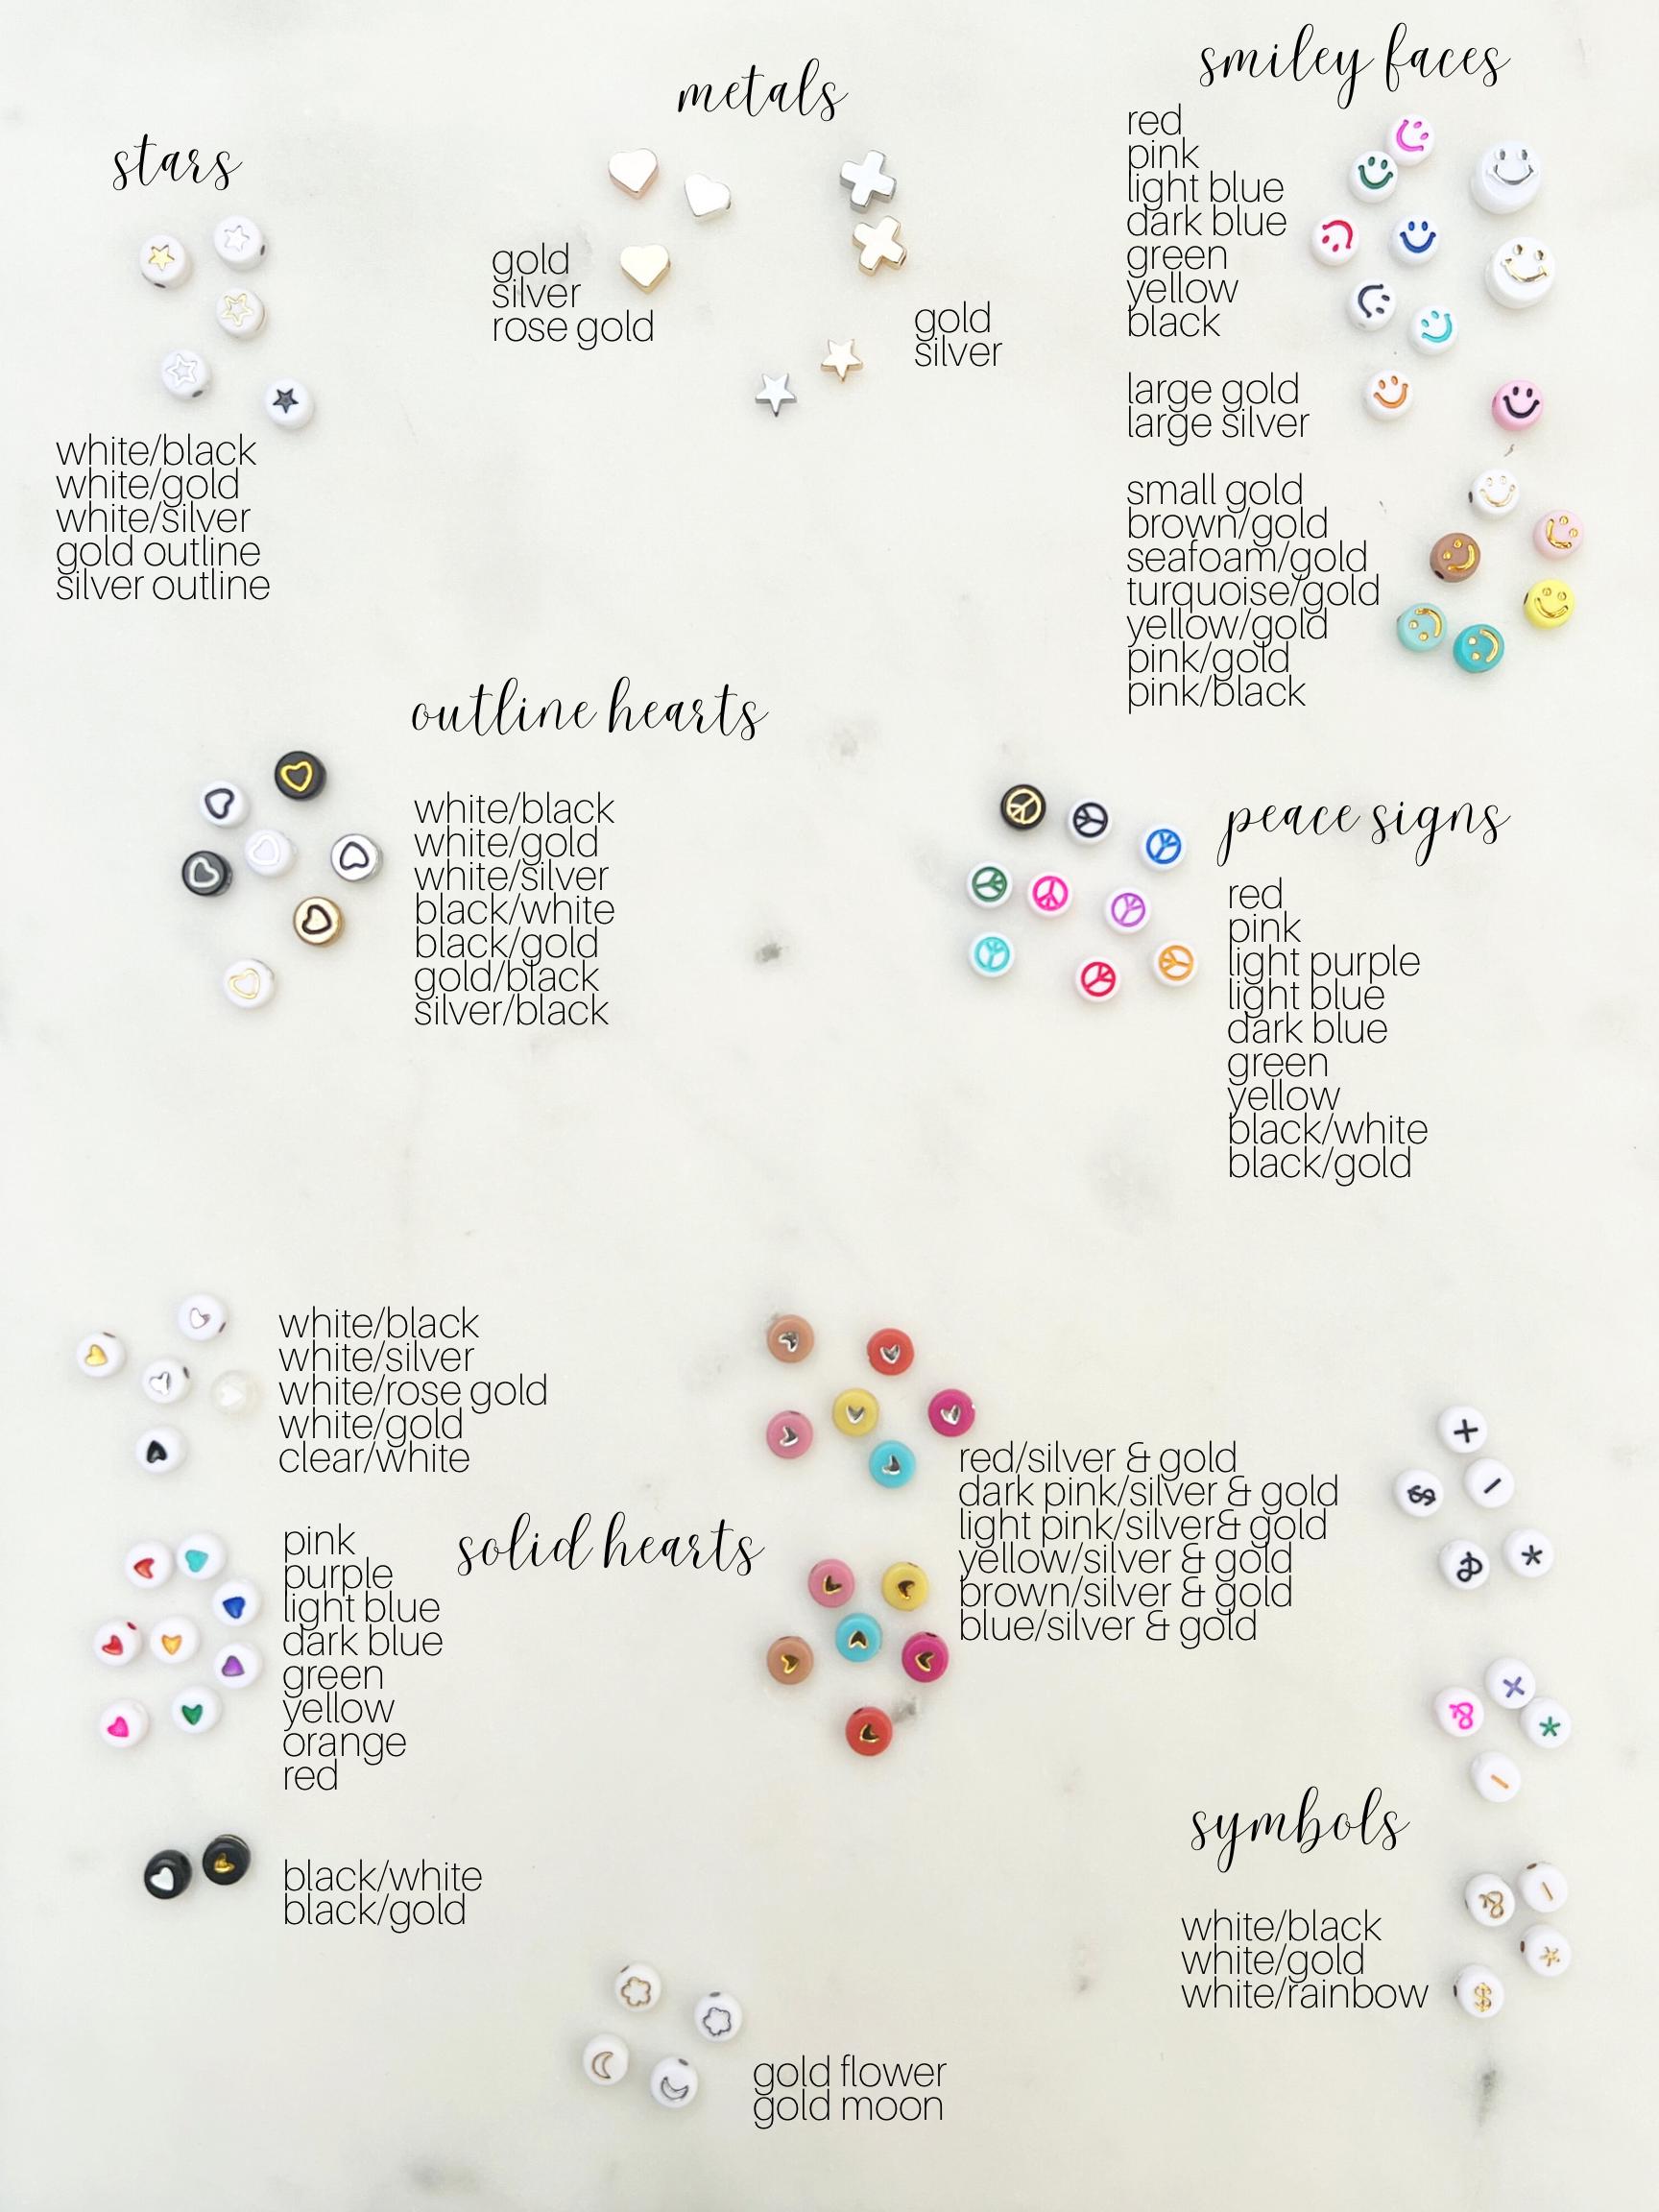 stars
white/black
white/gold
white/silver
gold outline
silver outline
metals
gold
silver
rose gold
gold
silver
smiley faces
red
pink
light blue
dark blue
green
yellow
black
large gold
large silver
small gold
brown/gold
seafoam/gold
turquoise/gold
yellow/gold
pink/gold
pink/black
outline hearts
white/black
white/gold
white/silver
black/white
black/gold
gold/black
silver/black
peace signs
red
pink
light purple
light blue
dark blue
green
yellow
black/white
black/gold
white/black
white/silver
white/rose gold
white/gold
clear/white
solid hearts
pink
purple
light blue
dark blue
green
yellow
orange
red
black/white
black/gold
red/silver & gold
dark pink/silver & gold
light pink/silver& gold
yellow/silver & gold
brown/silver & gold
blue/silver & gold
+
$
-
&
*
+
&
*
-
symbols
white/black
white/gold
white/rainbow
&
-
*
$
gold flower
gold moon